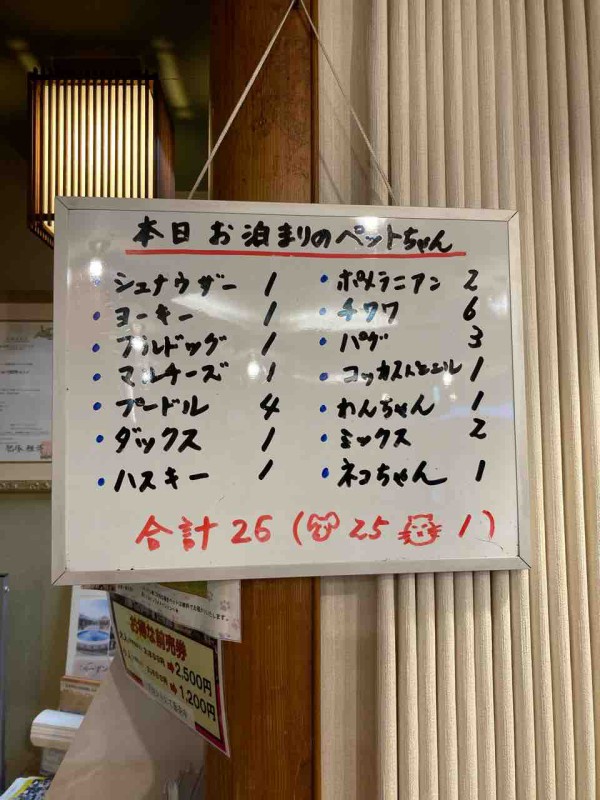 本日 お泊まりのペットちゃん
・シュナウザー 1
・ヨーキー 1
・ブルドッグ 1
・マルチーズ 1
・プードル 4
・ダックス 1
・ハスキー 1
・ポメラニアン 2
・チワワ 6
・パグ 3
・コッカスパニエル 1
・わんちゃん 1
・ミックス 2
・ネコちゃん 1
合計 26 ( 25 1)
お得な前売券
2,500円
1,200円